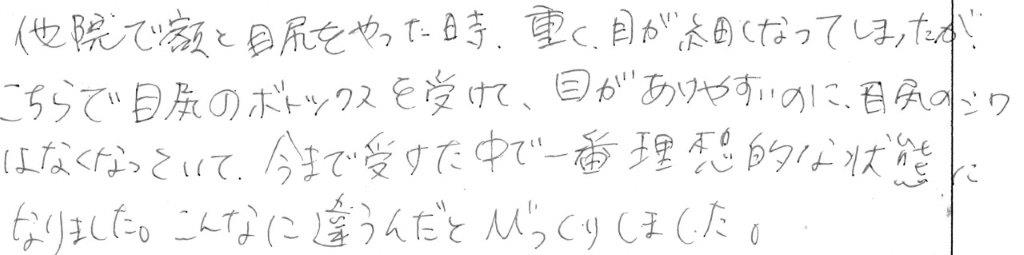 他院で額と目尻をやった時、重く、目が細くなってしまったが、
こちらで目尻のボトックスを受けて、目があけやすいのに、目尻のシワ
はなくなっていて、今まで受けた中で一番理想的な状態に
なりました。こんなに違うんだとびっくりしました。